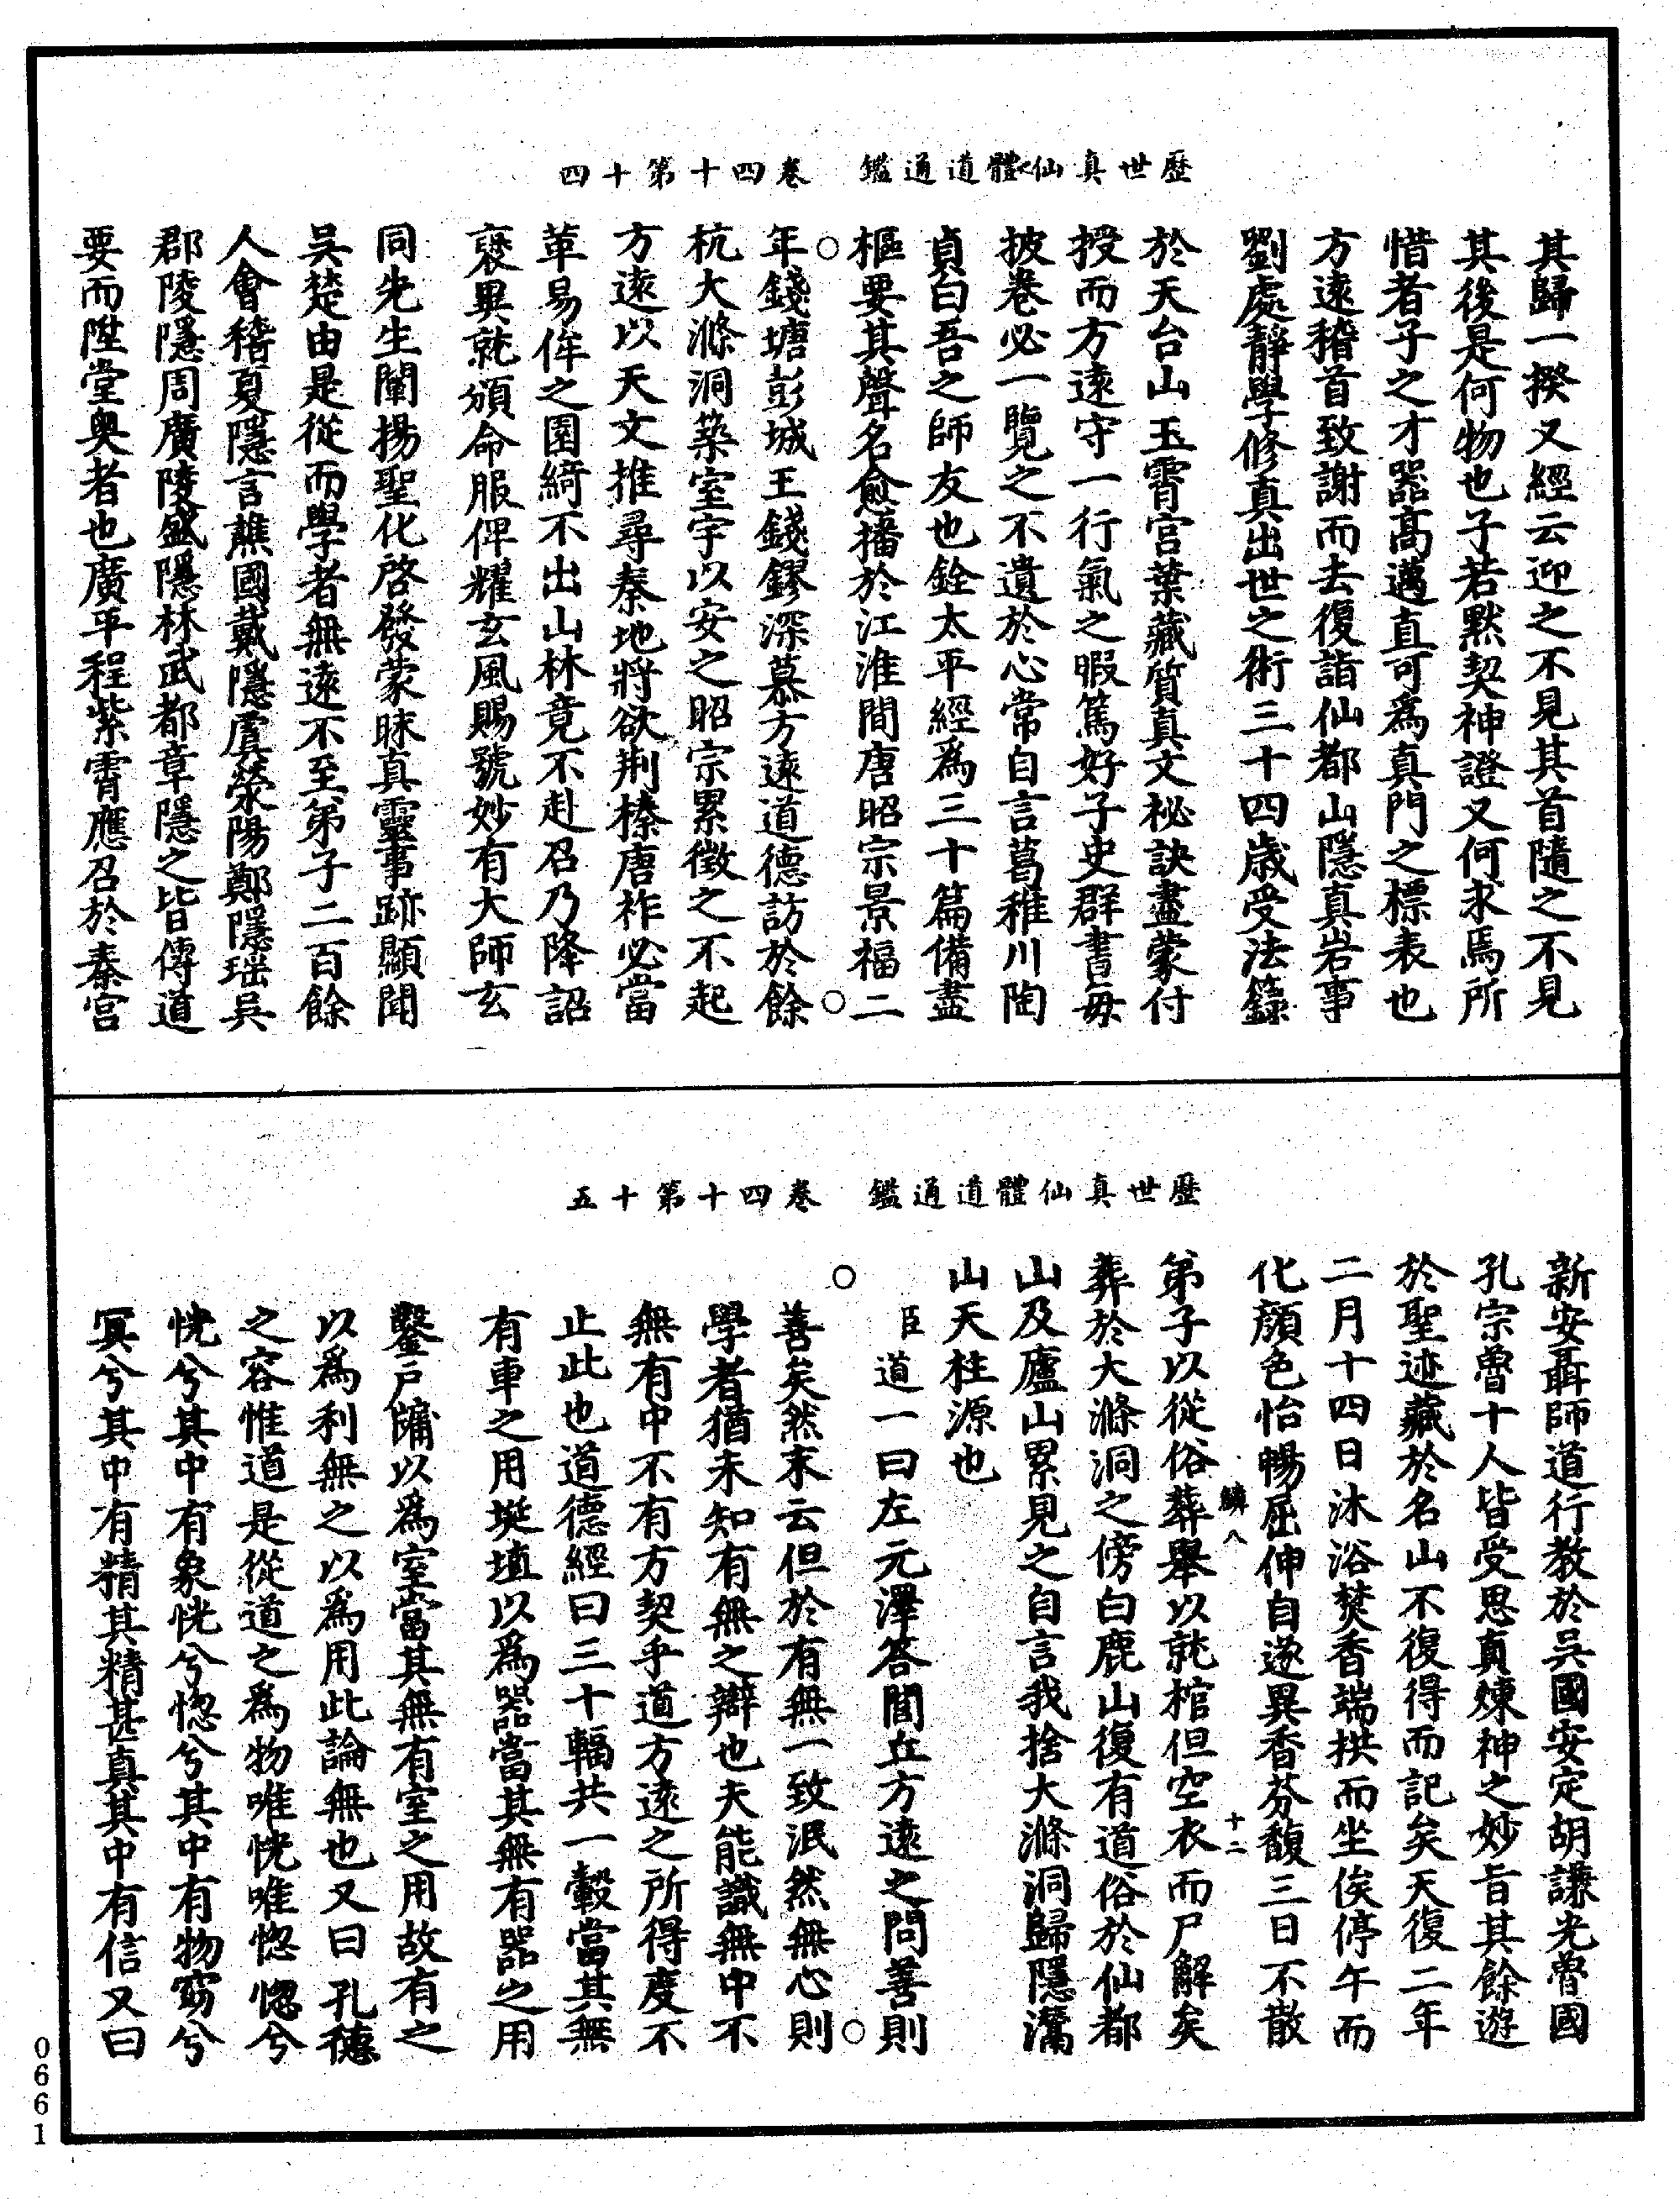 歷世真仙體道通鑑　卷四十第十四
其歸一揆又經云迎之不見其首隨之不見
其後是何物也子若默契神證又何求焉所
惜者子之才器高邁直可為真門之標表也
方遠稽首致謝而去復詣仙都山隱真岩事
劉處靜學修真出世之術三十四歲受法籙
於天台山玉霄宮葉藏質真文秘訣盡蒙付
授而方遠守一行氣之暇篤好子史群書每
披卷必一覽之不遺於心常自言葛稚川陶
貞白吾之師友也銓太平經爲三十篇備盡
樞要其聲名愈播於江淮間唐昭宗景福二
年錢塘彭城王錢鏐深慕方遠道德訪於餘
杭大滌洞築室宇以安之昭宗累徵之不起
方遠以天文推尋秦地將欲荆榛唐祚必當
革易侔之園綺不出山林竟不赴召乃降詔
褒異就頒命服俾耀玄風賜號妙有大師玄
同先生闡揚聖化啓發蒙昧真靈事跡顯聞
吳楚由是從而學者無遠不至弟子二百餘
人會稽夏隱言譙國戴隱虞滎陽鄭隱瑶吳
郡陵隱周廣陵盛隱林武都章隱之皆傳道
要而陞堂奥者也廣平程紫霄應召於秦宮
歷世真仙體道通鑑　卷四十第十五
新安聶師道行教於吳國安定胡謙光魯國
孔宗魯十人皆受思真煉神之妙旨其餘遊
於聖迹藏於名山不復得而記矣天復二年
二月十四日沐浴焚香端拱而坐俟停午而
化顔色怡暢屈伸自遂異香芬馥三日不散
鱗八　十二
弟子以從俗葬舉以就棺但空衣而尸解矣
葬於大滌洞之傍白鹿山復有道俗於仙都
山及廬山累見之自言我捨大滌洞歸隱灊
山天柱源也
臣道一曰左元澤答閭丘方遠之問善則
善矣然末云但於有無一致泯然無心則
學者猶未知有無之辯也夫能識無中不
無有中不有方契乎道方遠之所得度不
止此也道德經曰三十輻共一轂當其無
有車之用埏埴以爲器當其無有器之用
鑿戶牖以爲室當其無有室之用故有之
以爲利無之以爲用此論無也又曰孔德
之容惟道是從道之爲物唯恍唯惚惚兮
恍兮其中有象恍兮惚兮其中有物窈兮
冥兮其中有精其精甚真其中有信又曰
0661